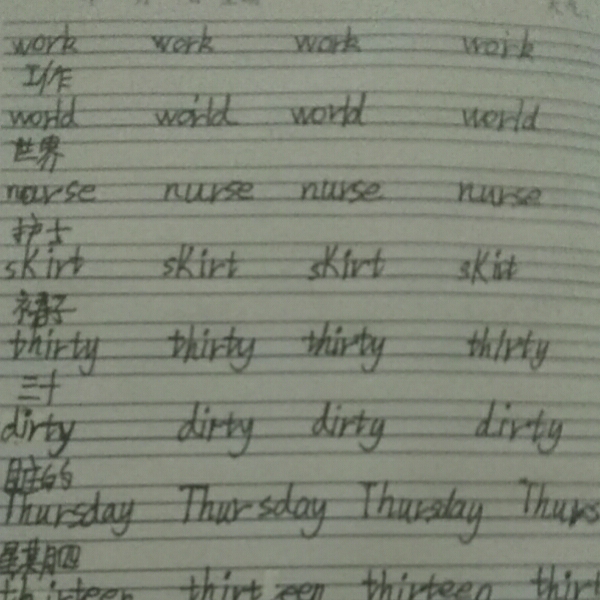 work work work work
工作
world world world world
世界
nurse nurse nurse nurse
护士
skirt skirt skirt skirt
裙子
thirty thirty thirty thirty
三十
dirty dirty dirty dirty
脏的
Thursday Thursday Thursday Thurs
星期四
thirteen thirteen thirteen thirt